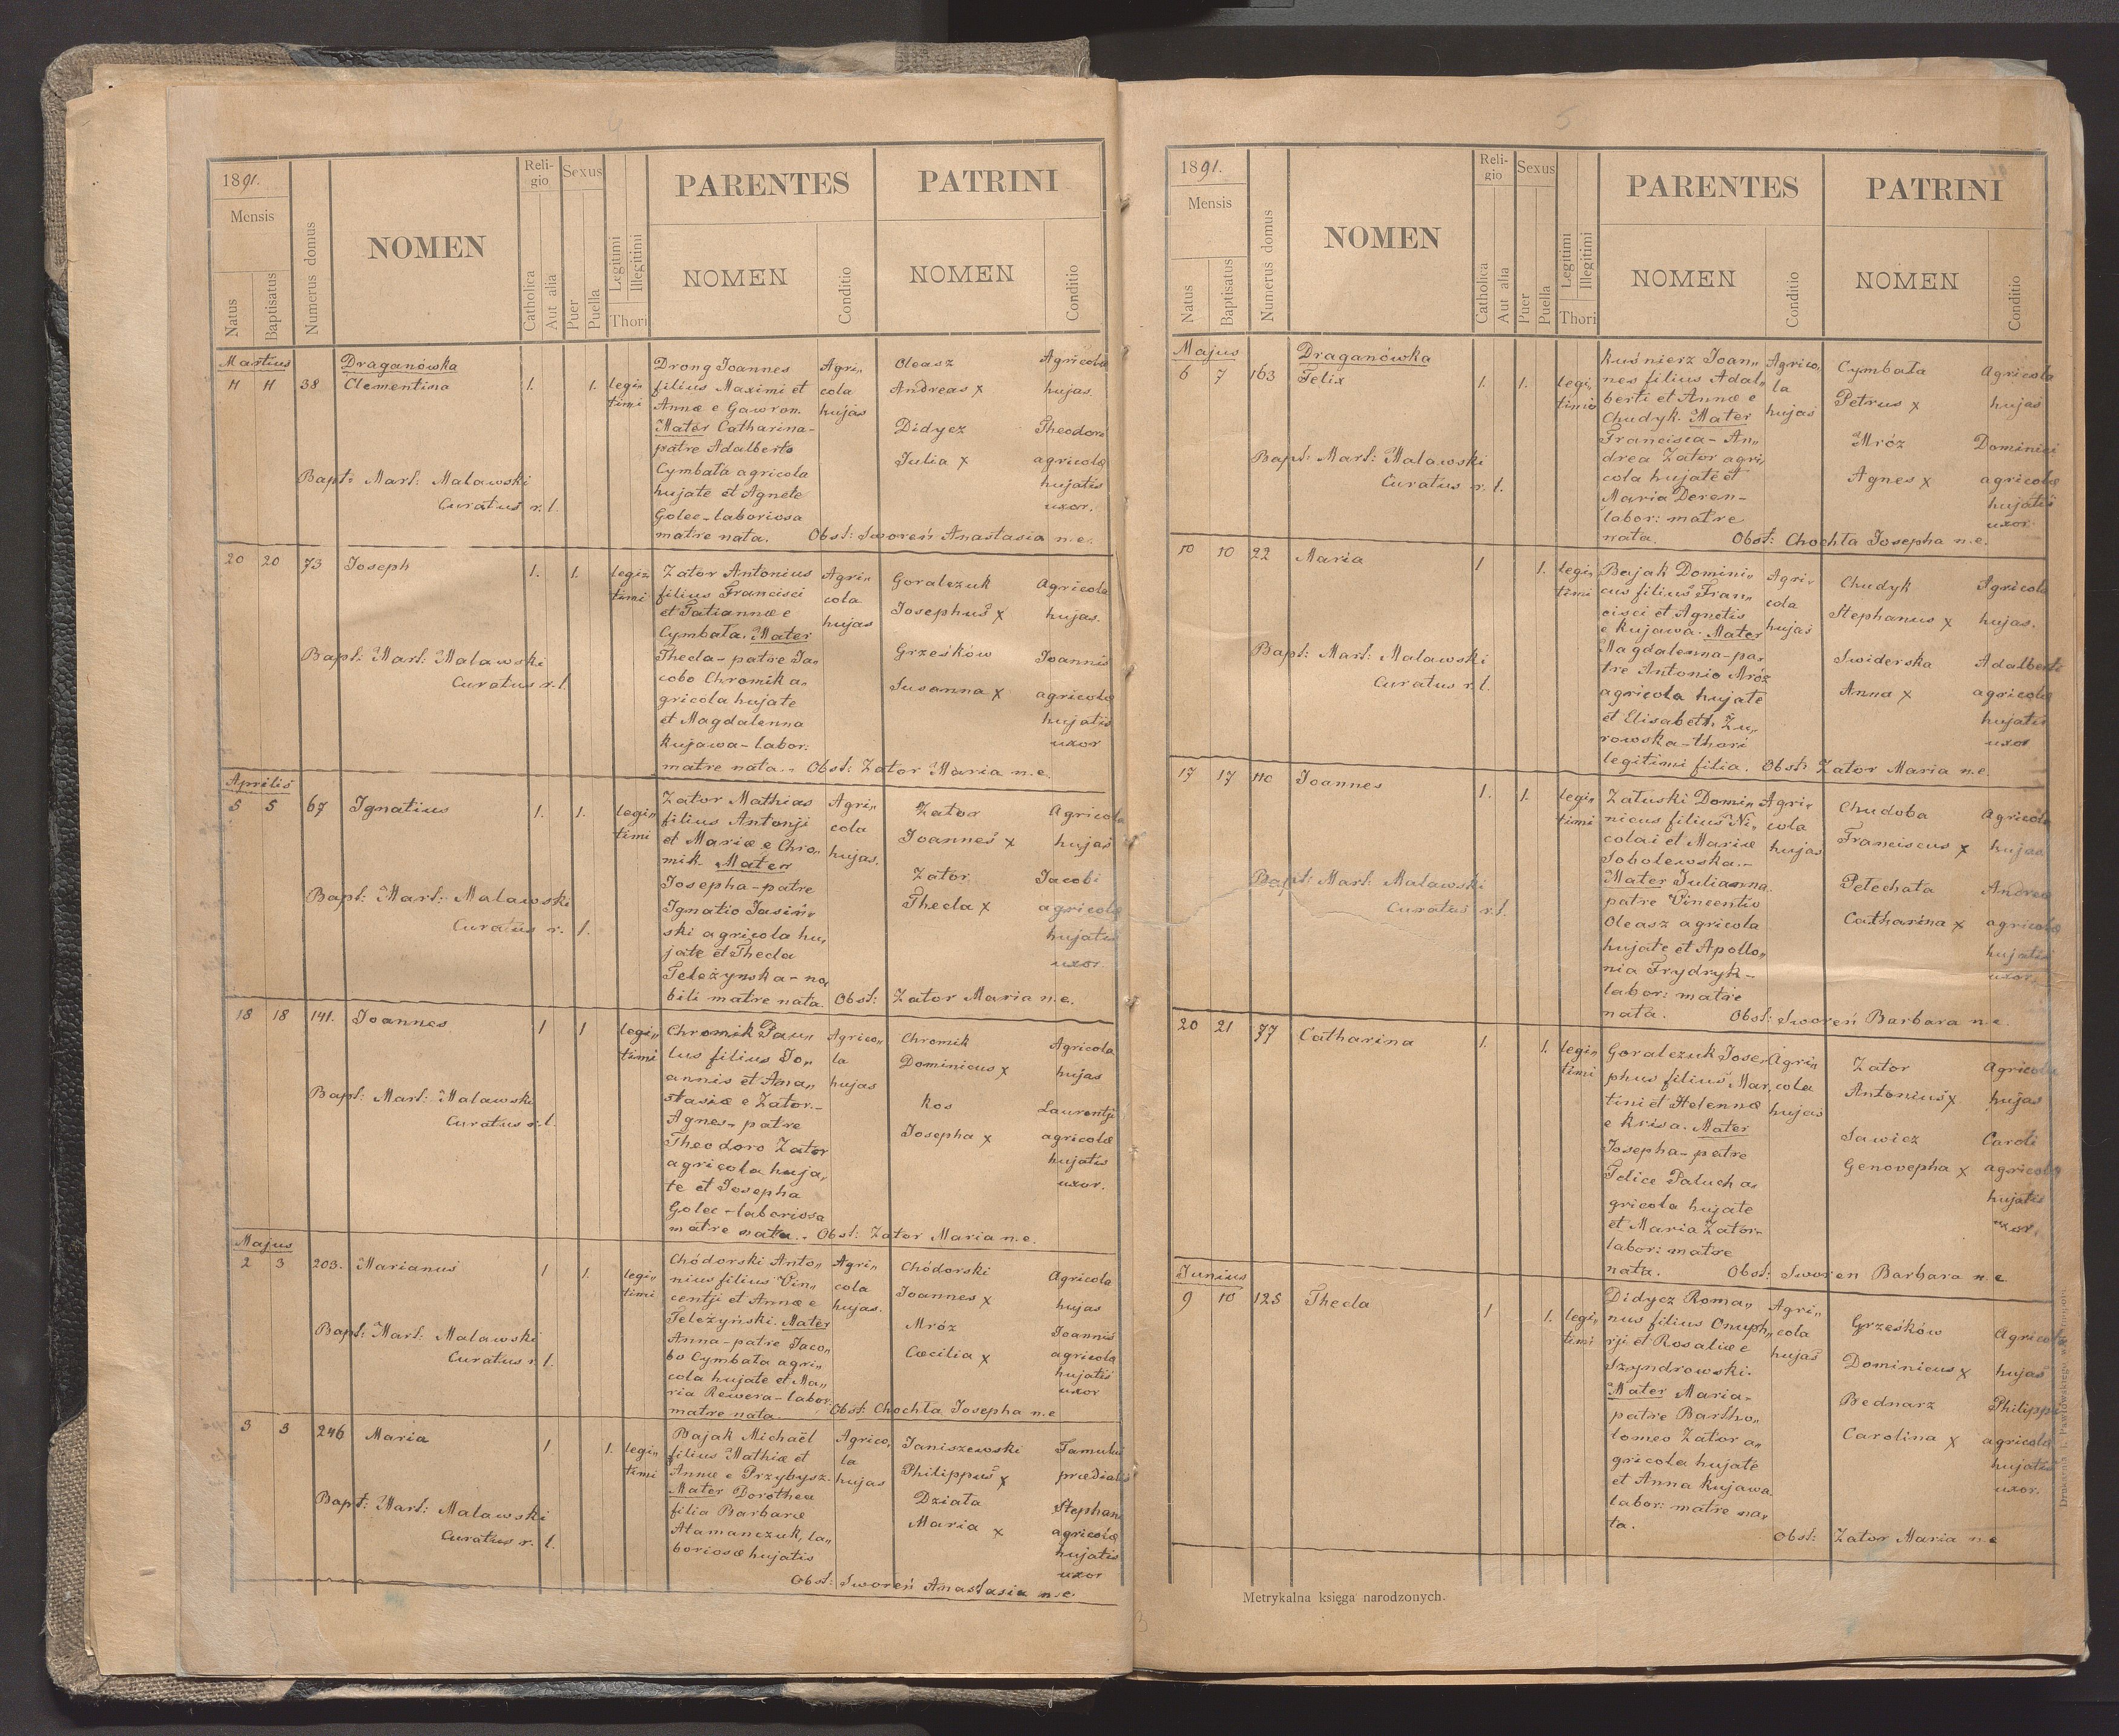 4
1891.
Mensis
Natus
Baptisatus
Numerus domus
NOMEN
Reli-
gio
Catholica
Aut alia
Sexus
Puer
Puella
Legitimi
Illegitimi
Thori
PARENTES
NOMEN
Conditio
PATRINI
NOMEN
Conditio
Martius
11 11 38
Draganówka
Clementina
1. 1. legi„
timi
Drong Joannes
filius Maximi et
Annæ e Gawron.
Mater Catharina-
patre Adalberto
Cymbała agricola
hujate et Agnete
Golec-laboriosa
matre nata.
Agri„
cola
hujas
Oleasz
Andreas x
Didycz
Julia x
Agricola
hujas
Theodori
agricolæ
hujatis
uxor.
Bapt: Mart: Malawski
Curatus r. l.
Obst: Sworeń Anastasia n.e.
20 20 73 Joseph
1. 1. legi„
timi
Zator Antonius
filius Francisci
et Tatiannæ e
Cymbała. Mater
Thecla-patre Ja„
cobo Chromik a„
gricola hujate
et Magdalenna
Kujawa-labor:
matre nata.-
Agri„
cola
hujas
Goralczuk
Josephus x
Grześków
Susanna x
Agricola
hujas.
Joannis
agricolæ
hujatis
uxor
Bapt: Mart: Malawski
Curatus r. l.
Obst: Zator Maria n.e.
Aprilis
5 5 67 Ignatius
1. 1. legi„
timi
Zator Mathias
filius Antonji
et Mariæ e Chro„
mik. Mater
Josepha-patre
Ignatio Jasiń„
ski agricola hu„
jate et Thecla
Teleżynska-no„
bili matre nata.
Agri„
cola
hujas.
Zator
Joannes x
Zator
Thecla x
Agricola
hujas
Jacobi
agricolæ
hujatis
uxor.
Bapt: Mart: Malawski
Curatus r. l.
Obst: Zator Maria n.e.
18 18 141. Joannes
1 1 legi„
timi
Chromik Pau„
lus filius Jo„
annis et Ana„
stasiæ e Zator.-
Agnes-patre
Theodoro Zator
agricola huja„
te et Josepha
Golec-laboriosa
matre nata.-
Agrico„
la
hujas
Chromik
Dominicus x
Kos
Josepha x
Agricola
hujas
Laurentji
agricolæ
hujatis
uxor.
Bapt: Mart: Malawski
Curatus r. l.
Obst: Zator Maria n.e.
Majus
2 3 203. Marianus
1 1. legi„
timi
Chódorski Anto„
nius filius Vin„
centji et Annæ e
Teleżyński. Mater
Anna-patre Jaco„
bo Cymbała agri„
cola hujate et Ma„
ria Rewera-labor.
matre nata.
Agri„
cola
hujas.
Chódorski
Joannes x
Mróz
Cæcilia x
Agricola
hujas
Joannis
agricola
hujatis
uxor
Bapt: Mart: Malawski
Curatus r. l.
Obst: Chochła Josepha n.e
3 3 246 Maria
1. 1. legi„
timi
Bajak Michaël
filius Mathiæ et
Annæ e Przybysz.
Mater Dorothea
filia Barbaræ
Atamanczuk, la„
boriosæ hujatis
Agrico„
la
hujas
Janiszewski
Philippus x
Działa
Maria x
Famulus
prædialis
Stephani
agricolæ
hujatis
uxor
Bapt: Mart: Malawski
Curatus r. l.
Obst: Sworeń Anastasia n.e.
5
1891.
Mensis
Natus
Baptisatus
Numerus domus
NOMEN
Reli-
gio
Catholica
Aut alia
Sexus
Puer
Puella
Legitimi
Illegitimi
Thori
PARENTES
NOMEN
Conditio
PATRINI
NOMEN
Conditio
Majus
6 7 163
Draganówka
Felix
1. 1. legi„
timi
Kuśnierz Joan„
nes filius Adal„
berti et Annæ e
Chudyk. Mater
Francisca-An„
drea Zator agri„
cola hujate et
Maria Deren-
labor: matre
nata.
Agrico„
la
hujas
Cymbała
Petrus x
Mróz
Agnes x
Agricola
hujas
Dominici
agricolæ
hujatis
uxor
Bapt: Mart: Malawski
Curatus r. l.
Obst: Chochła Josepha n.e.
10 10 22 Maria
1 1. legi„
timi
Bajak Domini„
cus filius Fran„
cisci et Agnetis
e Kujawa. Mater
Magdalenna-pa„
tre Antonio Mróz
agricola hujate
et Elisabeth Żu„
rowska-thori
legitimi filia.
Agri„
cola
hujas
Chudyk
Stephanus x
Swiderska
Anna x
Agricola
hujas.
Adalberti
agricolæ
hujatis
uxor
Bapt: Mart: Malawski
Curatus r. l.
Obst: Zator Maria n.e
17 17 110 Joannes
1. 1. legi„
timi
Załuski Domi„
nicus filius Ni„
colai et Mariæ
Sobolewska.-
Mater Julianna.
patre Vincentio
Oleasz agricola
hujate et Apollo„
nia Frydryk-
labor: matre
nata.
Agri„
cola
hujas
Chudoba
Franciscus x
Petechata
Catharina x
Agricola
hujas
Andreæ
agricolæ
hujatis
uxor.
Bapt: Mart: Malawski
Curatus r. l.
Obst: Sworeń Barbara n.e.
20 21 77 Catharina
1. 1. legi„
timi
Goralczuk Jose„
phus filius Mar„
tini et Helennæ
e Krisa. Mater
Josepha-patre
Felice Paluch a„
gricola hujate
et Maria Zator-
labor: matre
nata.
Agri„
cola
hujas
Zator
Antonius x
Sawicz
Genovepha x
Agricola
hujas
Caroli
agricolæ
hujatis
uxor.
Obst: Sworen Barbara n.e
Junius
9 10 125 Thecla
1 1. legi„
timi
Didycz Roma„
nus filius Onuph„
rji et Rosaliæ e
Szyndrowski.
Mater Maria-
patre Bartho„
lomeo Zator a„
gricola hujate
et Anna Kujawa
labor: matre na„
ta.
Agri„
cola
hujas
Grześków
Dominicus x
Bednarz
Carolina x
Agricola
hujas
Philippi
agricolæ
hujatis
uxor.
Obst: Zator Maria n.e
Metrykalna księga narodzonych.
Drukarnia L. Pawłowskiego w Tarnopolu.